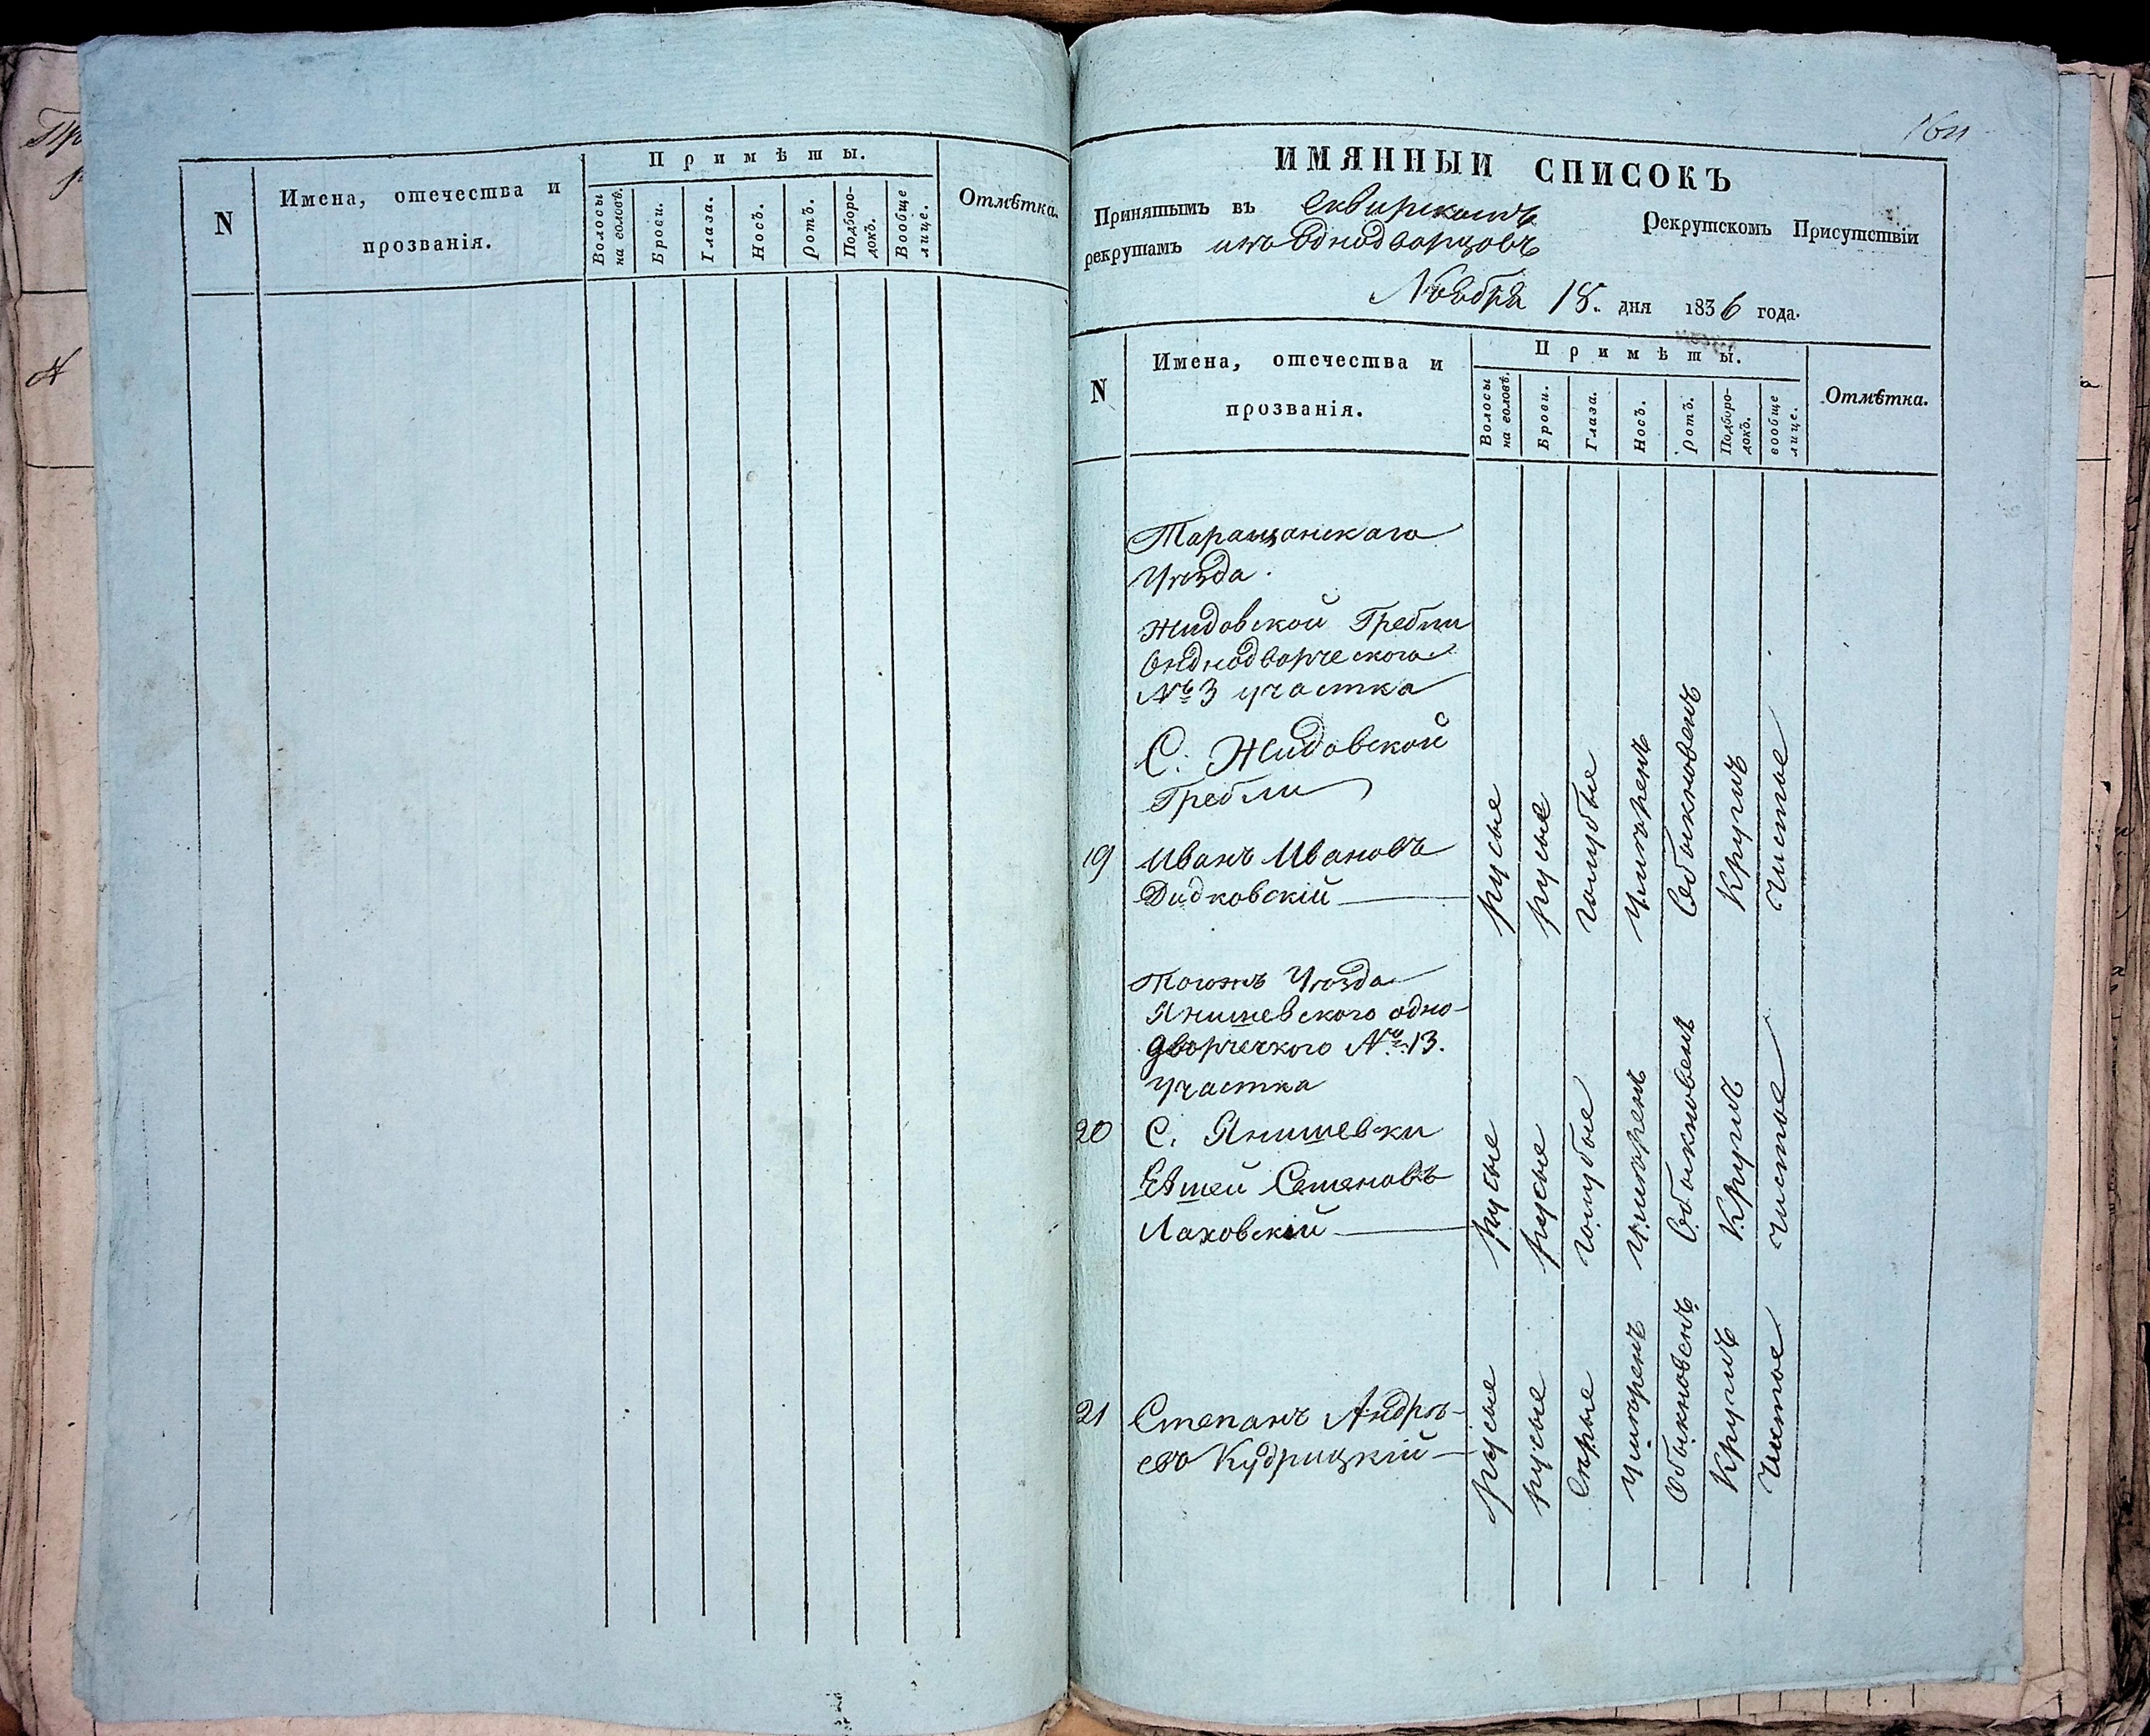 N
Имена, отечества и
прозванія.
Примѣты.
Волосы на головѣ.
Брови.
Глаза.
Носъ.
Ротъ.
Подборо-
докъ.
Вообще
лице.
Отмѣтка.
ИМЯННЫЙ СПИСОКЪ
Принятымъ въ Сквирскомъ Рекрутскомъ Присутствіи
рекрутамъ изъ Однодворцовъ
Ноября 18. дня 1836 года.
N
Имена, отечества и
прозванія.
Примѣты.
Волосы
на головѣ.
Брови.
Глаза.
Носъ.
Ротъ.
Подборо-
докъ.
вообще
лице.
Отмѣтка.
Таращанскаго
Уѣзда.
Жидовской Гребли
Однодворческого
№ 3 участка
С. Жидовской
Гребли
19 Иванъ Ивановъ
Дидковскій
русые русые голубые умѣренъ обыкновенъ круглъ чистое
Тогожъ Уѣзда
Янишевского одно-
дворческого № 13.
участка
20 С. Янишевки
Семеновъ
Лаховскій
русые русые голубые умѣренъ обыкновенъ круглъ чистое
21 Степанъ Андрѣ-
евъ Кудрицкій
русые русые сѣрые умѣренъ обыкновенъ круглъ чистое